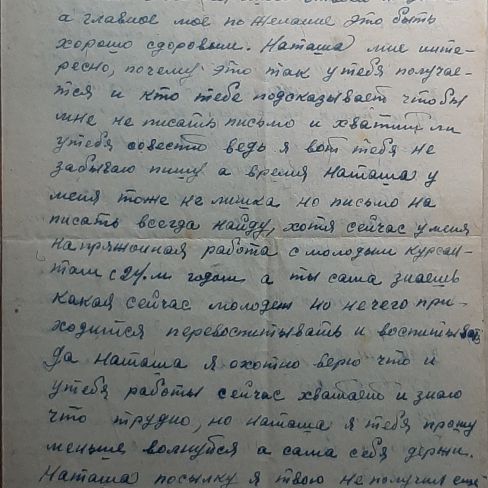 а главное мое пожелание это быть
хорошо здоровыми. Наташа мне инте-
ресно, почему это так у тебя получае-
тся и кто тебе подсказывает чтобы
мне не писать письмо и хватит ли
у тебя совести ведь я вот тебя не
забываю пишу а время Наташа у
меня тоже не лишка но письмо на
писать всегда найду, хотя сейчас у меня
напряжонная работа с молодым курсан-
том с 24-ми годом а ты сама знаешь
какая сейчас молодеж но нечего при-
ходится перевоспитывать и воспитывать
Да Наташа я охотно верю что и
у тебя работы сейчас хватает и знаю
что трудно, но Наташа я тебя прошу
меньше волнуйся а сама себя держи.
Наташа посылку я твою не получил еще